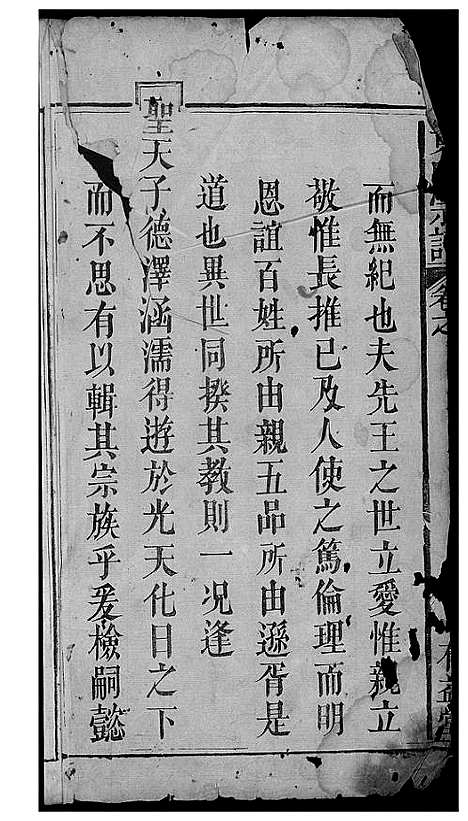 宗譜 卷之
而無紀也夫先王之世立愛惟親立
敬惟長推已及人使之篤倫理而明
恩誼百姓所由親五品所由遜胥是
道也異世同揆其教則一况逢
聖天子德澤涵濡得遊於光天化日之下
而不思有以輯其宗族乎爰檢嗣懿